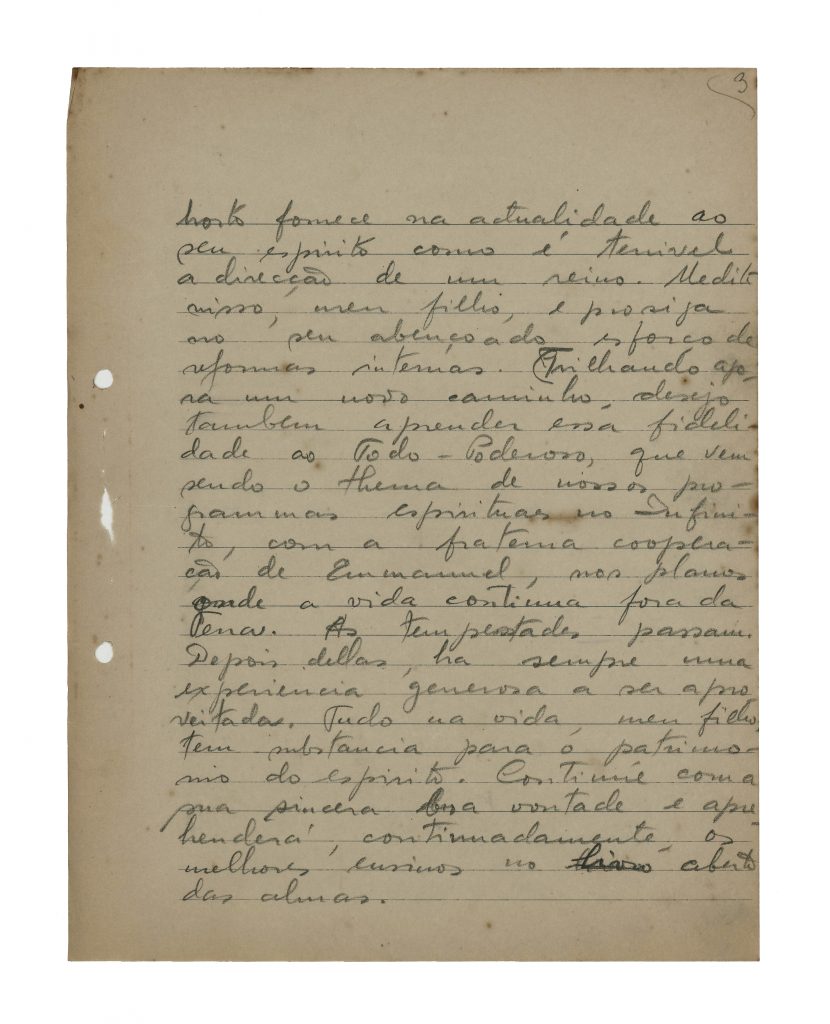 3
horto fornece na actualidade ao
seu espirito como é terrivel
a direcção de um reino. Medite
nisso, meu filho, e prosiga
no seu abençoado esforço de
reformas internas. Trilhando ago-
ra um novo caminho, desejo
tambem aprender essa fideli-
dade ao Todo-Poderoso, que vem
sendo o thema de nossos pro-
grammas espirituaes no Infini-
to, com a fraterna coopera-
ção de Emmanuel, nos planos
onde a vida continua fora da
Terra. As tempestades passam.
Depois dellas, ha sempre uma
experiencia generosa a ser apro-
veitada. Tudo na vida, meu filho,
tem substancia para o patrimo-
nio do espirito. Continúe com a
sua sincera boa vontade e apre-
henderá, continuadamente, os
melhores ensinos no livro aberto
das almas.